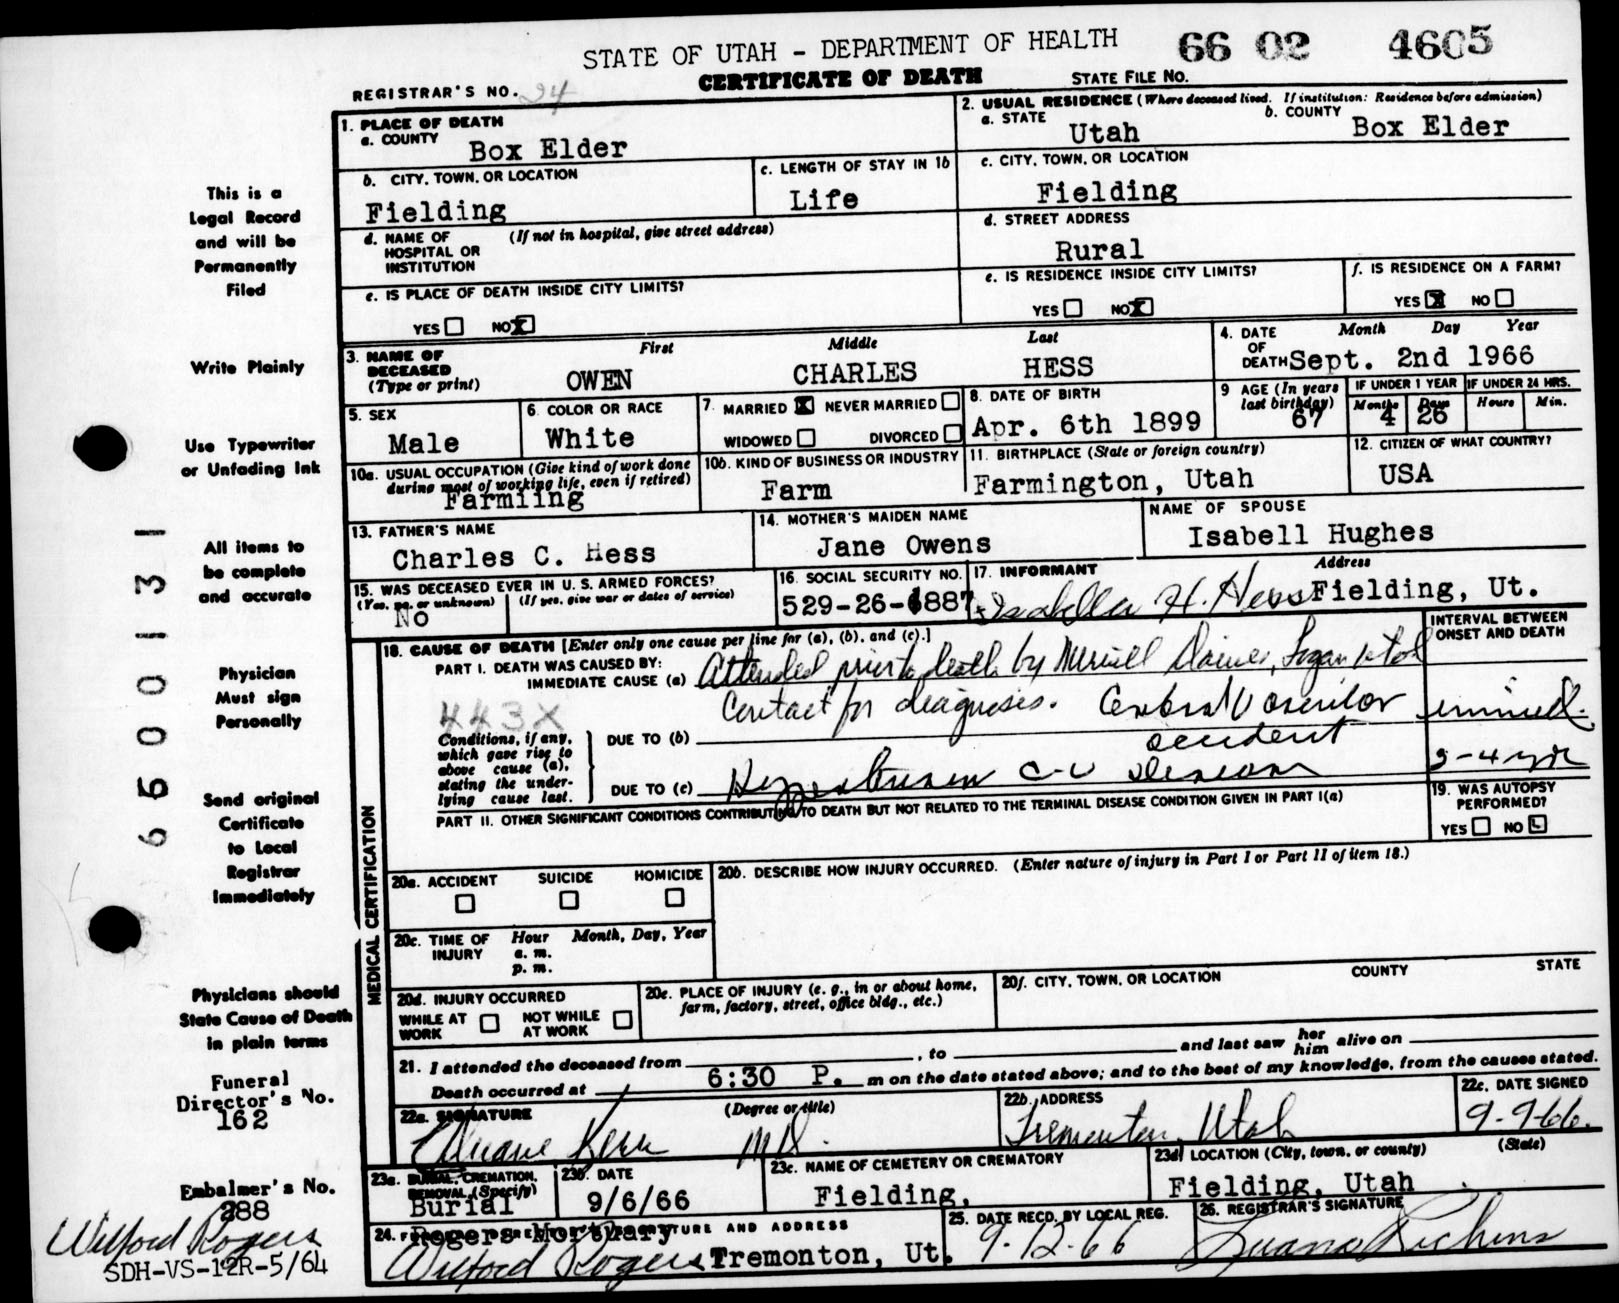 STATE OF UTAH - DEPARTMENT OF HEALTH 66 02 4605
CERTIFICATE OF DEATH STATE FILE NO.
REGISTRAR'S NO. 24
1. PLACE OF DEATH
a. COUNTY Box Elder
2. USUAL RESIDENCE (Where deceased lived. If institution: Residence before admission)
a. STATE Utah b. COUNTY Box Elder
b. CITY, TOWN, OR LOCATION Fielding
c. LENGTH OF STAY IN 1b Life
c. CITY, TOWN, OR LOCATION Fielding
d. NAME OF HOSPITAL OR INSTITUTION (If not in hospital, give street address)
d. STREET ADDRESS Rural
e. IS PLACE OF DEATH INSIDE CITY LIMITS?
YES NO X
e. IS RESIDENCE INSIDE CITY LIMITS?
YES NO X
f. IS RESIDENCE ON A FARM?
YES X NO
3. NAME OF DECEASED (Type or print)
First Middle Last
OWEN CHARLES HESS
4. DATE OF DEATH Month Day Year
Sept. 2nd 1966
5. SEX Male
6. COLOR OR RACE White
7. MARRIED X NEVER MARRIED
WIDOWED DIVORCED
8. DATE OF BIRTH Apr. 6th 1899
9 AGE (In years last birthday) 67
IF UNDER 1 YEAR Months 4 Days 26
IF UNDER 24 HRS. Hours Min.
10a. USUAL OCCUPATION (Give kind of work done during most of working life, even if retired)
Farmiing
10b. KIND OF BUSINESS OR INDUSTRY Farm
11. BIRTHPLACE (State or foreign country) Farmington, Utah
12. CITIZEN OF WHAT COUNTRY? USA
13. FATHER'S NAME Charles C. Hess
14. MOTHER'S MAIDEN NAME Jane Owens
NAME OF SPOUSE Isabell Hughes
15. WAS DECEASED EVER IN U. S. ARMED FORCES?
(Yes, no, or unknown) (If yes, give war or dates of service)
No
16. SOCIAL SECURITY NO. 529-26-6887
17. INFORMANT Address
Isabella H. Hess Fielding, Ut.
18. CAUSE OF DEATH [Enter only one cause per line for (a), (b), and (c).]
INTERVAL BETWEEN ONSET AND DEATH
PART I. DEATH WAS CAUSED BY:
IMMEDIATE CAUSE (a) Attended prior to death by Merrill Daines, Logan Utah
Contact for diagnosis.
443X
Conditions, if any, which gave rise to above cause (a), stating the underlying cause last.
DUE TO (b) accident
DUE TO (c) C-V 3-4 yrs
PART II. OTHER SIGNIFICANT CONDITIONS CONTRIBUTING TO DEATH BUT NOT RELATED TO THE TERMINAL DISEASE CONDITION GIVEN IN PART I(a)
19. WAS AUTOPSY PERFORMED?
YES NO
MEDICAL CERTIFICATION
20a. ACCIDENT SUICIDE HOMICIDE
20b. DESCRIBE HOW INJURY OCCURRED. (Enter nature of injury in Part I or Part II of item 18.)
20c. TIME OF INJURY Hour Month, Day, Year
a. m.
p. m.
20d. INJURY OCCURRED
WHILE AT WORK NOT WHILE AT WORK
20e. PLACE OF INJURY (e. g., in or about home, farm, factory, street, office bldg., etc.)
20f. CITY, TOWN, OR LOCATION COUNTY STATE
21. I attended the deceased from , to and last saw her him alive on
Death occurred at 6:30 P. m on the date stated above; and to the best of my knowledge, from the causes stated.
22a. SIGNATURE (Degree or title)
Eduane Kerr MD.
22b. ADDRESS Tremonton, Utah
22c. DATE SIGNED 9-9-66.
23a. BURIAL, CREMATION, REMOVAL, (Specify) Burial
23b. DATE 9/6/66
23c. NAME OF CEMETERY OR CREMATORY Fielding,
23d. LOCATION (City, town, or county) (State)
Fielding, Utah
24. SIGNATURE AND ADDRESS
Rogers Mortuary
Wilford Rogers Tremonton, Ut.
25. DATE RECD. BY LOCAL REG. 9-12-66
26. REGISTRAR'S SIGNATURE
This is a
Legal Record
and will be
Permanently
Filed
Write Plainly
Use Typewriter
or Unfading Ink
All items to
be complete
and accurate
Physician
Must sign
Personally
Send original
Certificate
to Local
Registrar
Immediately
Physicians should
State Cause of Death
in plain terms
Funeral
Director's No.
162
Embalmer's No.
288
Wilford Rogers
SDH-VS-12R-5/64
6 6 5 0 0 1 3 1